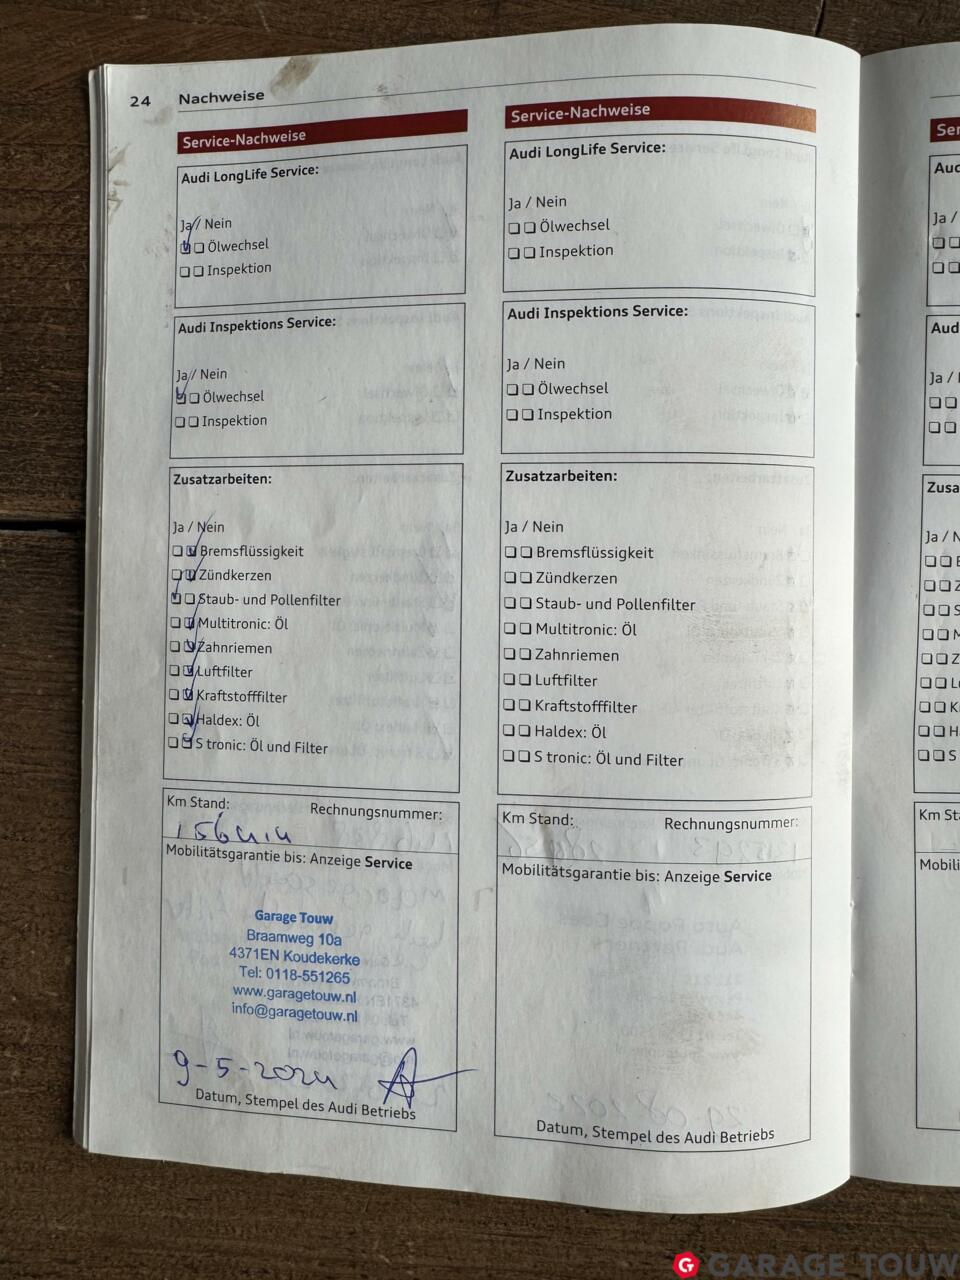 24 Nachweise
Service-Nachweise
Audi LongLife Service:
Ja / Nein
Ölwechsel
Inspektion
Audi Inspektions Service:
Ja / Nein
Ölwechsel
Inspektion
Zusatzarbeiten:
Ja / Nein
Bremsflüssigkeit
Zündkerzen
Staub- und Pollenfilter
Multitronic: Öl
Zahnriemen
Luftfilter
Kraftstofffilter
Haldex: Öl
S tronic: Öl und Filter
Km Stand: Rechnungsnummer:
156414
Mobilitätsgarantie bis: Anzeige Service
Garage Touw
Braamweg 10a
4371EN Koudekerke
Tel: 0118-551265
www.garagetouw.nl
info@garagetouw.nl
9-5-2024
Datum, Stempel des Audi Betriebs
Service-Nachweise
Audi LongLife Service:
Ja / Nein
Ölwechsel
Inspektion
Audi Inspektions Service:
Ja / Nein
Ölwechsel
Inspektion
Zusatzarbeiten:
Ja / Nein
Bremsflüssigkeit
Zündkerzen
Staub- und Pollenfilter
Multitronic: Öl
Zahnriemen
Luftfilter
Kraftstofffilter
Haldex: Öl
S tronic: Öl und Filter
Km Stand: Rechnungsnummer:
Mobilitätsgarantie bis: Anzeige Service
Datum, Stempel des Audi Betriebs
GARAGE TOUW